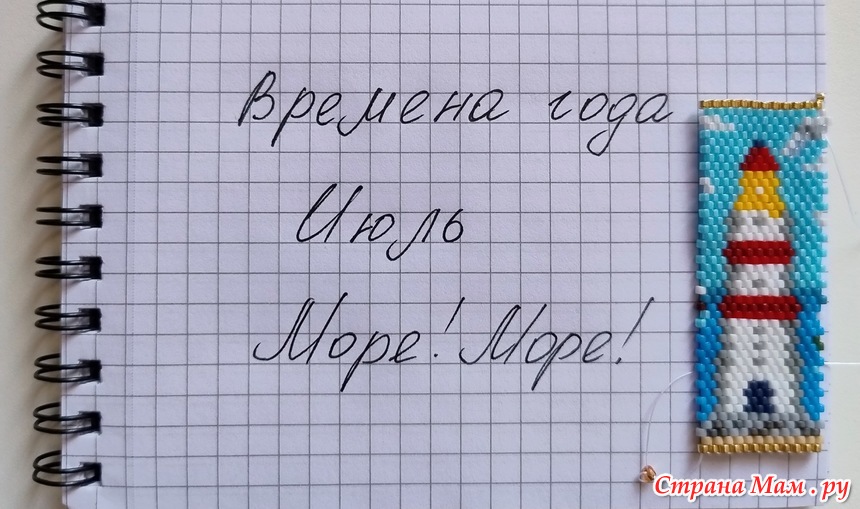 Времена года
Июль
Море! Море!
Страна Мам.ру